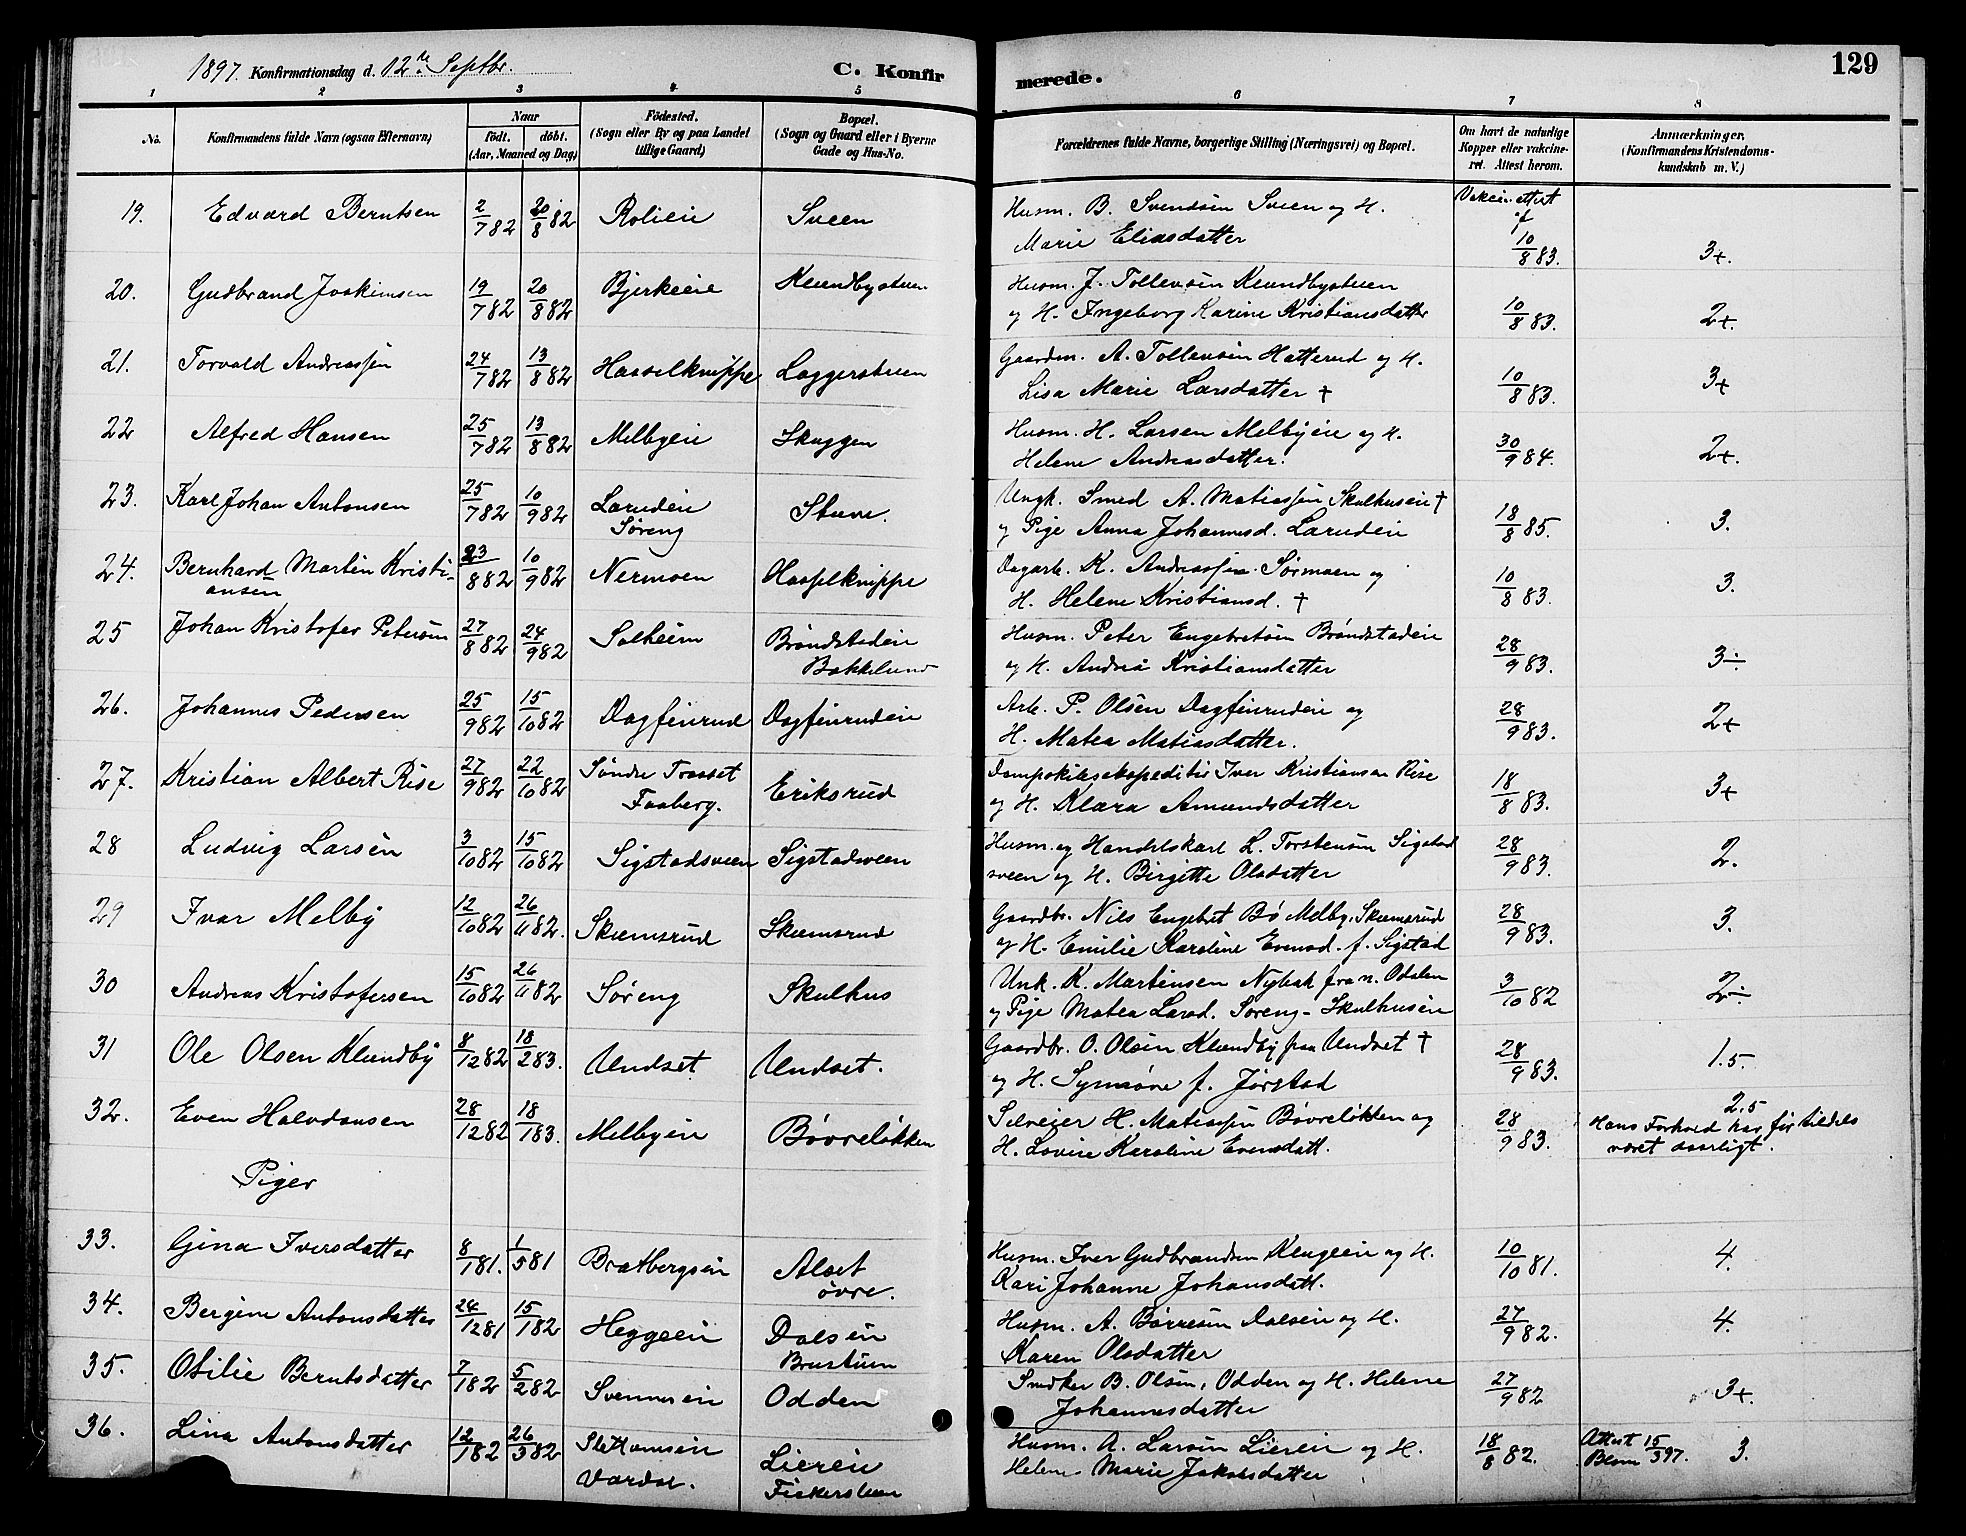 1897. Konfirmationsdag d. 12te Septbr. C. Konfirmerede. 129
1 2 3 4 5 6 7 8
No. Konfirmandens fulde Navn (ogsaa Efternavn) Naar födt. döbt. (Aar, Maaned og Dag) Födested. (Sogn eller By og paa Landet tillige Gaard) Bopæl. (Sogn og Gaard eller i Byerne Gade og Hus-No. Forældrenes fulde Navne, borgerlige Stilling (Næringsvei) og Bopæl. Om havt de naturlige Kopper eller vakcineret. Attest herom. Anmærkninger. (Konfirmandens Kristendomskundskab m. V.)
19. Edvard Berntsen 2/7 82 20/8 82 Rolieie Sveen Husm. B. Svendsen Sveen og H. Vakcin. attest af
Marie Eliasdatter 10/8 83. 3+.
20. Gudbrand Joakimsen 19/7 82 20/8 82 Bjerkeie Klundbystuen Husm. J. Tollevsen Klundbystuen
og H. Ingeborg Karine Kristiansdatter 10/8 83. 2+.
21. Torvald Andreassen 24/7 82 13/8 82 Hasselknippe Laggerstuen Gaardm. A. Tollevsen Hatterud og H.
Lisa Marie Larsdatter † 10/8 83. 3+
22 Alfred Hansen 25/7 82 13/8 82 Melbyeie Skuggen Husm. H. Larsen Melbyeie og H.
Helene Andreasdatter. 30/9 84. 2+.
23. Karl Johan Antonsen 25/7 82 10/9 82 Larudeie Stuve. Ungk. Smed A. Matiassen Skulhuseie †
Søreng og Pige Anna Johannesd. Larudeie 18/8 85. 3.
24. Bernhard Martin Kristi- 23/8 82 10/9 82 Nermoen Hasselknippe Dagarb. K. Andreassen Sørmoen og
ansen H. Helene Kristiansd. † 10/8 83. 3.
25 Johan Kristofer Petersen 27/8 82 24/9 82 Solheim Brøndstadeie Husm. Peter Engebretsen Brøndstadeie
Bakkelund og H. Andrea Kristiansdatter 28/9 83. 3÷
26. Johannes Pedersen 25/9 82 15/10 82 Dagfinrud Dagfinrudeie Arb. P. Olsen Dagfinrudeie og
H. Matea Matiasdatter. 28/9 83. 2+
27. Kristian Albert Rise 27/9 82 22/10 82 Søndre Trosset Eriksrud Dampskibsekspeditør Iver Kristiansen Rise
Faaberg. og H. Klara Amundsdatter 18/8 83. 3+
28 Ludvig Larsen 3/10 82 15/10 82 Sigstadsveen Sigstadsveen Husm. og Handelskarl L. Torstensen Sigstad
sveen og H. Birgitte Olsdatter 28/9 83. 2.
29 Ivar Melby 12/10 82 26/11 82. Skumsrud Skumsrud Gaardbr. Nils Engebret Bø Melby. Skumsrud
og H. Emilie Karoline Evensd. f. Sigstad 28/9 83. 3.
30 Andreas Kristofersen 15/10 82 26/11 82 Søreng Skulhus Unk. K. Martinsen Nybak fra n. Odalen
og Pige Matea Larsd. Søreng-Skulhuseie 3/10 82 2÷
31 Ole Olsen Klundby 8/12 82 18/2 83. Undset Undset. Gaardbr. O. Olsen Klundby fra Undset †
og H. Synnøve f. Jørstad 28/9 83. 1.5.
32. Even Halvdansen 28/12 82 18/1 83. Melbyeie Bøvreløkken Selveier H. Matiassen Bøvreløkken og 2,5
H. Lovise Karoline Evensdatt. 28/9 83. Hans Forhold har før tildels
været daarligt.
Piger
33. Gina Iversdatter 8/1 81. 1/5 81 Bratbergseie Alset Husm. Iver Gudbrandsen Klugeeie og H.
øvre. Kari Johanne Johansdatt. 10/10 81. 4.
34. Bergine Antonsdatter 24/12 81 15/1 82 Heggeeie Dalseie Husm. A. Børresen Dalseie og H.
Brustuen Karen Olsdatter 27/9 82. 4.
35. Otilie Berntsdatter 7/1 82 5/2 82 Svenneseie Odden Snedker B. Olsen, Odden og H. Helene
Johannesdatter 27/9 82 3+.
36. Lina Antonsdatter 12/1 82 26/3 82 Slettumseie Liereie Husm. A. Larsen Liereie og H. Attest 15/3 97.
Vardal. Fiskerstuen Helene Marie Jakobsdatter 18/8 82. 3.